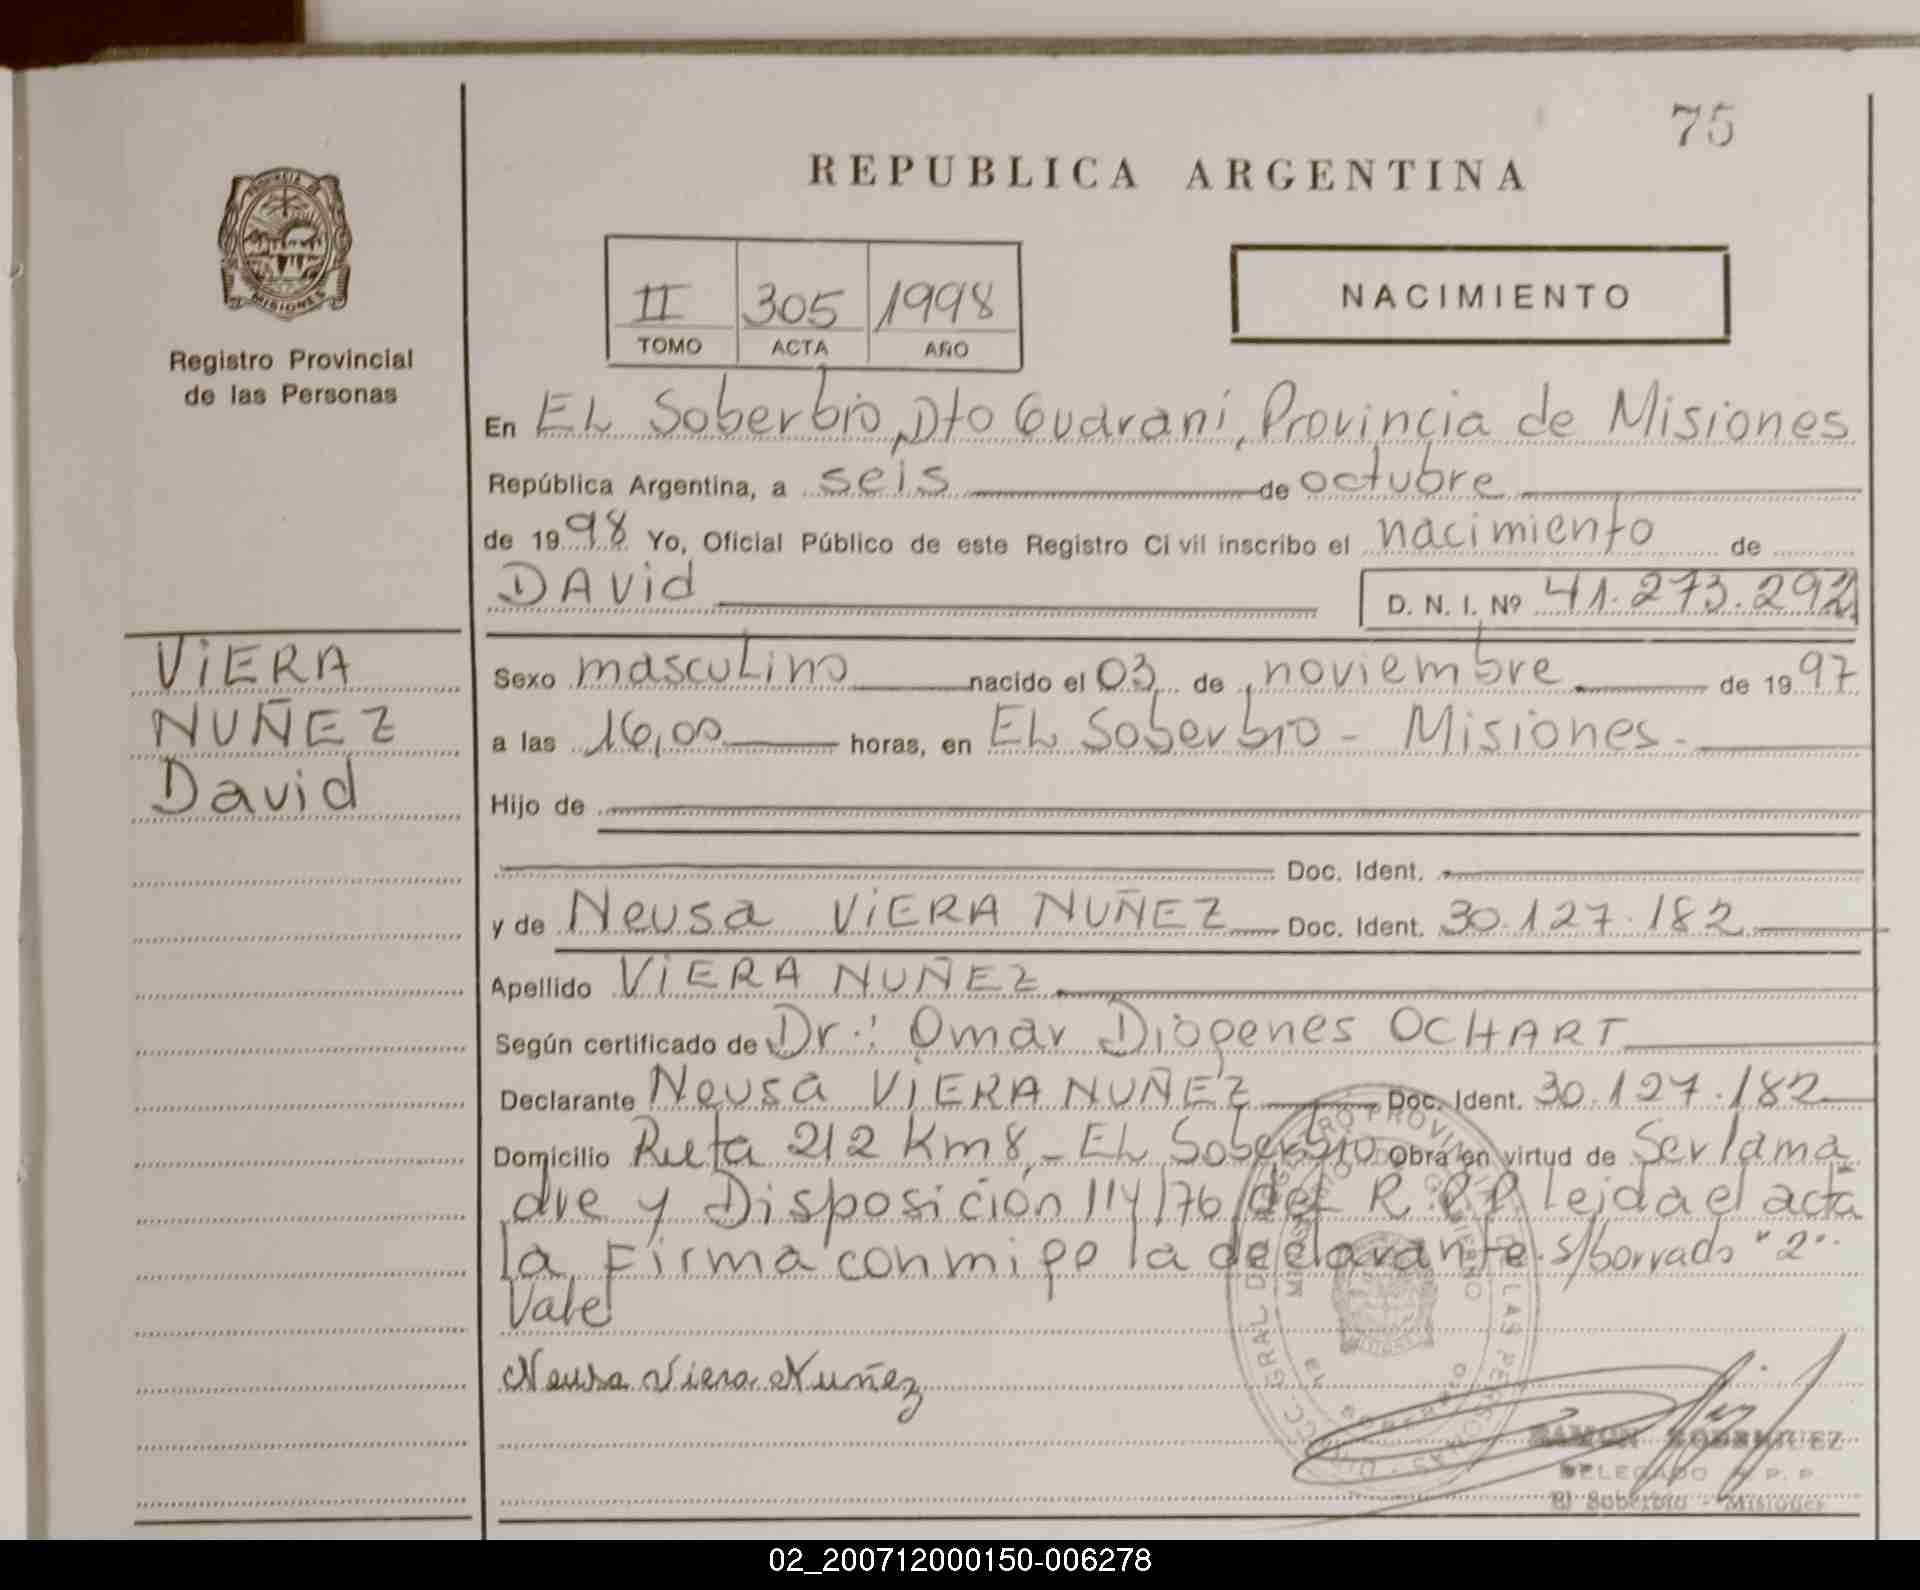 75
REPUBLICA ARGENTINA
PROVINCIA DE
MISIONES
Registro Provincial
de las Personas
II 305 1998
TOMO ACTA AÑO
NACIMIENTO
En EL Soberbio, Dto Guaraní, Provincia de Misiones
República Argentina, a seis de octubre
de 1998 Yo, Oficial Público de este Registro Civil inscribo el nacimiento de
DAVid D. N. I. Nº 41.273.292
VIERA
NUÑEZ
David
Sexo masculino nacido el 03 de noviembre de 1997
a las 16,00 horas, en EL Soberbio - Misiones.-
Hijo de
Doc. Ident.
y de Neusa VIERA NUÑEZ Doc. Ident. 30.127.182
Apellido VIERA NUÑEZ
Según certificado de Dr.: Omar Diogenes OCHART
Declarante Neusa VIERA NUÑEZ Doc. Ident. 30.127.182
Domicilio Ruta 212 Km 8,- EL Soberbio Obra en virtud de Ser la ma
dre y Disposición 114/76 del R.P.P. leida el acta
la Firma conmigo la declarante. s/borrado "2".
Vale
Neusa Viera Nuñez
RAMON RODRIGUEZ
DELEGADO R. P. P.
El Soberbio - Misiones
02_200712000150-006278